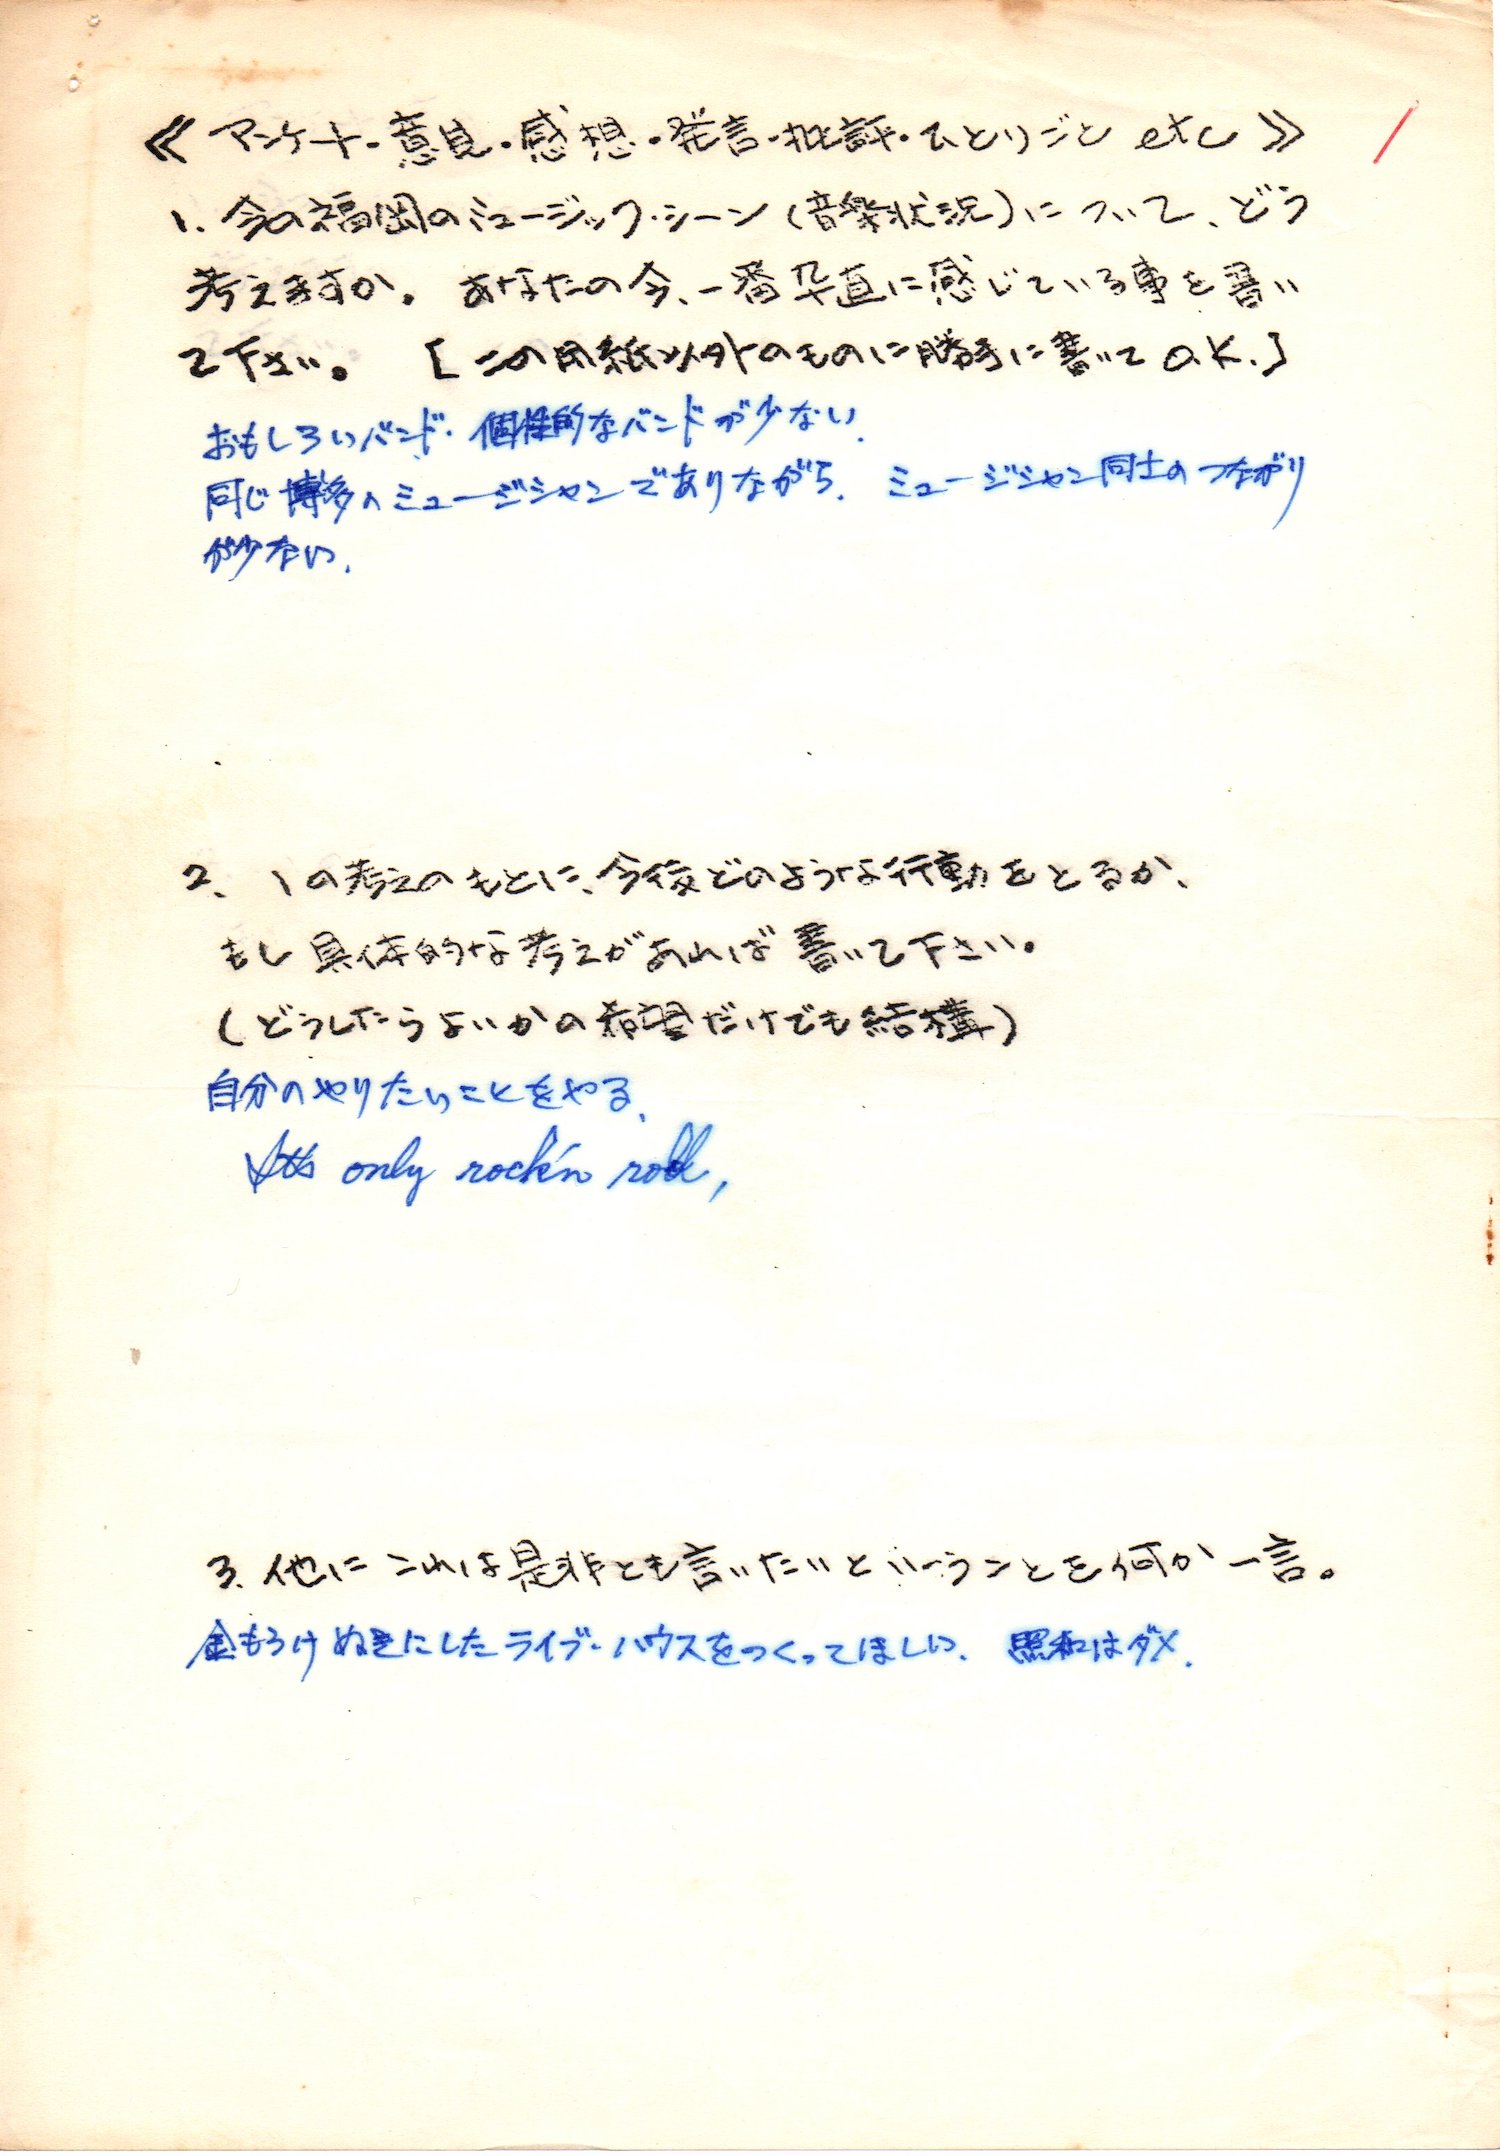 《 アンケート・意見・感想・発言・批評・ひとりごと etc 》 /
1. 今の福岡のミュージック・シーン(音楽状況)について、どう
考えますか。 あなたの今、一番卒直に感じている事を書い
て下さい。 [この用紙以外のものに勝手に書いてO.K.]
おもしろいバンド・個性的なバンドが少ない.
同じ博多のミュージシャンでありながら、ミュージシャン同士のつながり
が少ない.
2、 1の考えのもとに、今後どのような行動をとるか、
もし具体的な考えがあれば書いて下さい。
(どうしたらよいかの希望だけでも結構)
自分のやりたいことをやる、
It's only rock'n roll,
3. 他にこれは是非とも言いたいといーうことを何か一言。
金もうけぬきにしたライブ・ハウスをつくってほしい、 照和はダメ.